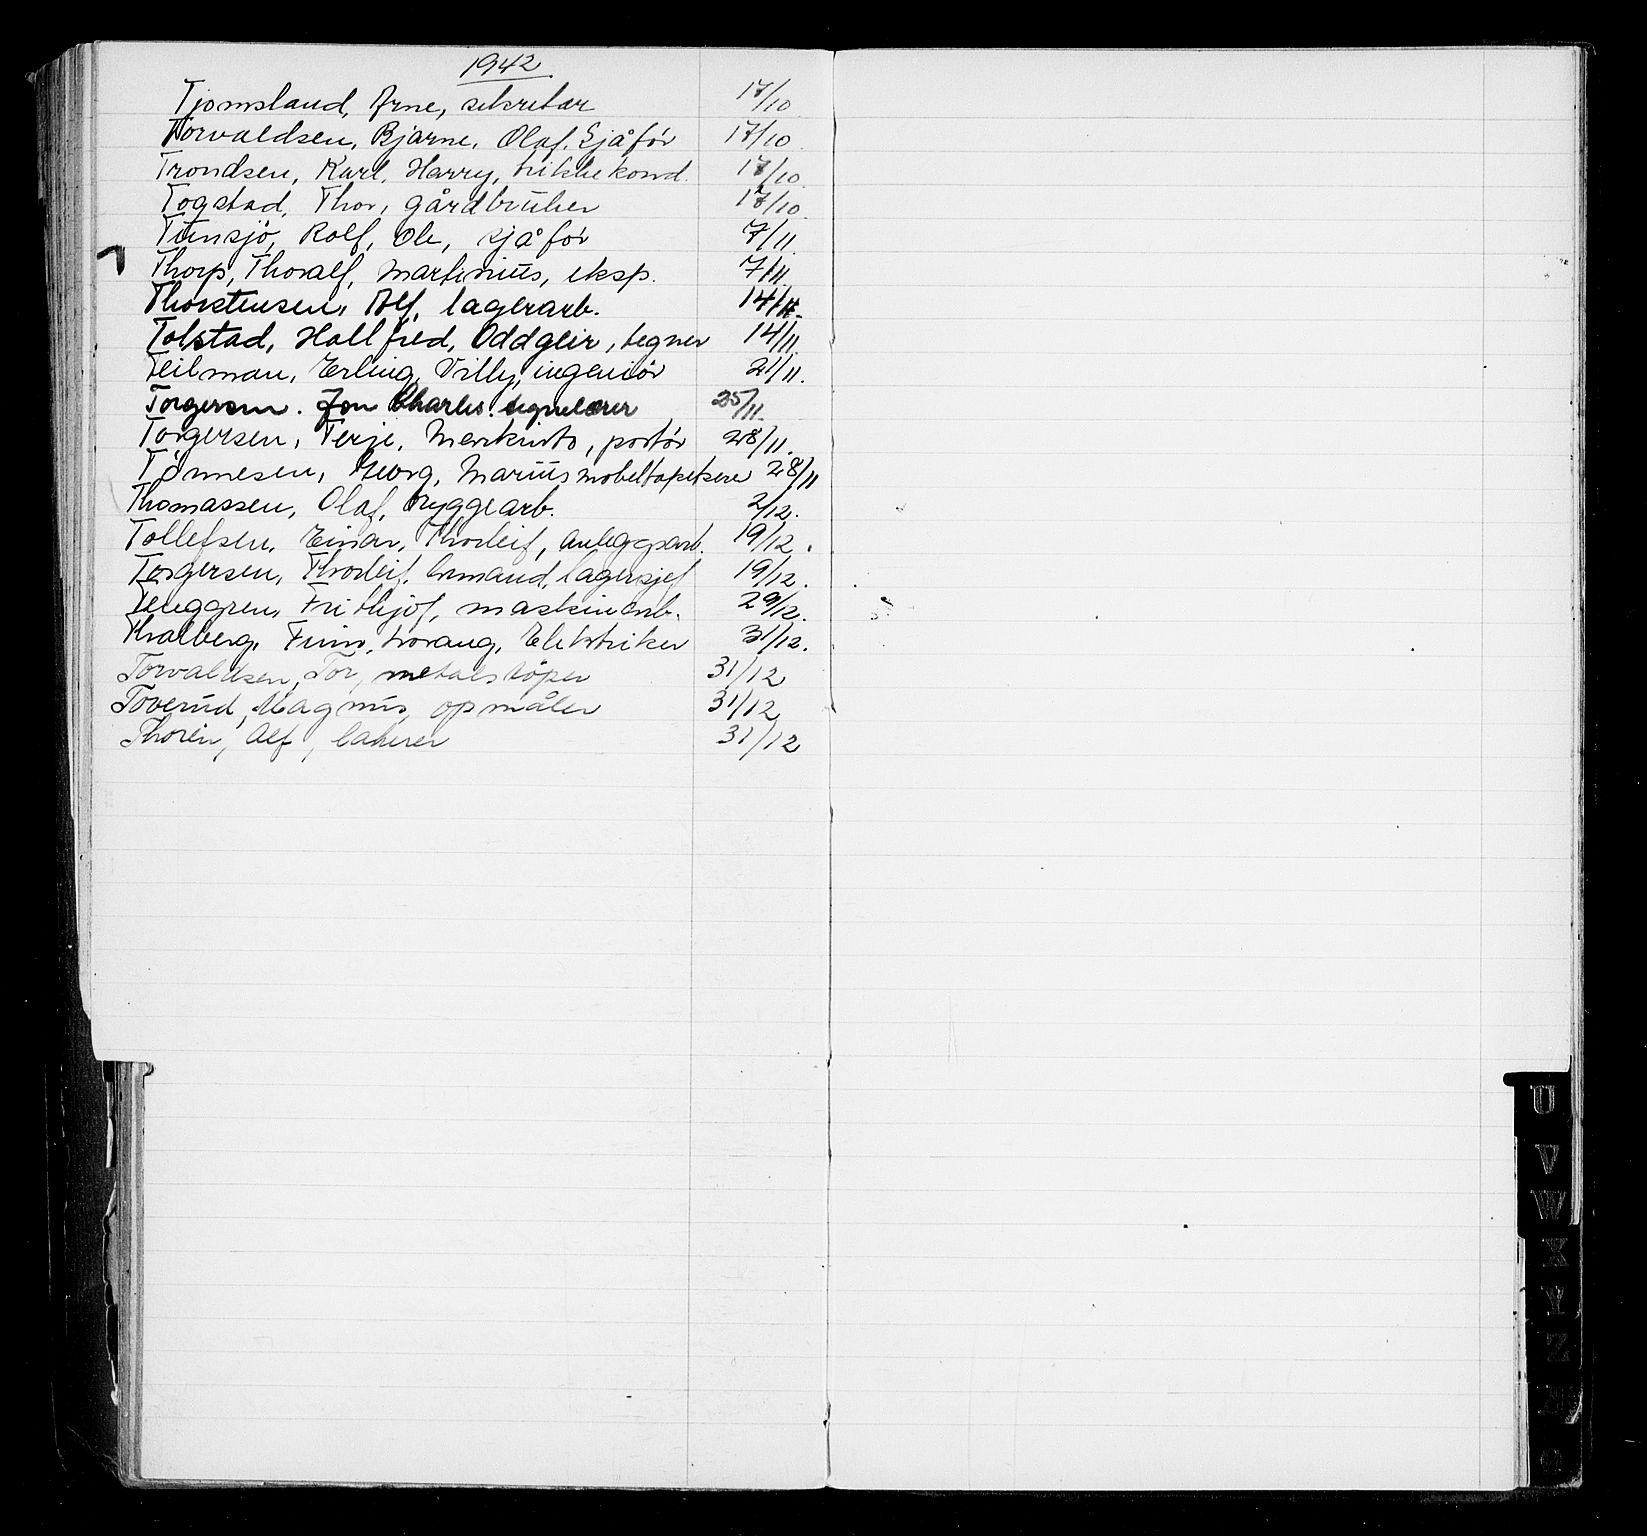 1942
Tjomsland, Arne, sekretær 17/10
Torvaldsen, Bjarne, Olaf, Sjåfør 17/10
Trondsen, Karl, Harry, trikkekond. 17/10
Togstad, Thor, gårdbruker 17/10
Tunsjö, Rolf, Ole, sjåfør 7/11
Thorp, Thoralf, Martinius, eksp. 7/11
Thorstensen, Alf, lagerarb. 14/11
Tolstad, Hallfred, Oddgeir, tegner 14/11
Teilman, Erling, Villy, ingeniör 21/11.
Torgersen. Jon Charles. tegnelærer 25/11.
Torgersen, Terje, portör 28/11.
Tönnesen, Georg, Marius möbeltapetserer 28/11
Thomassen, Olaf, byggearb. 2/12.
Tollefsen, Einar, Thorleif, anleggsarb. 19/12.
Torgersen, Thorleif, Armand, lagersjef 19/12.
Tenggren, Frithjof, maskinarb. 29/12.
Thalberg, Finn, Elektriker 31/12.
Torvaldsen, Tor, metalstöper 31/12
Toverud, Magnus, opmåler 31/12
Thorén, Alf, 31/12
U
V
W
X
Y
Z
Æ
Ø